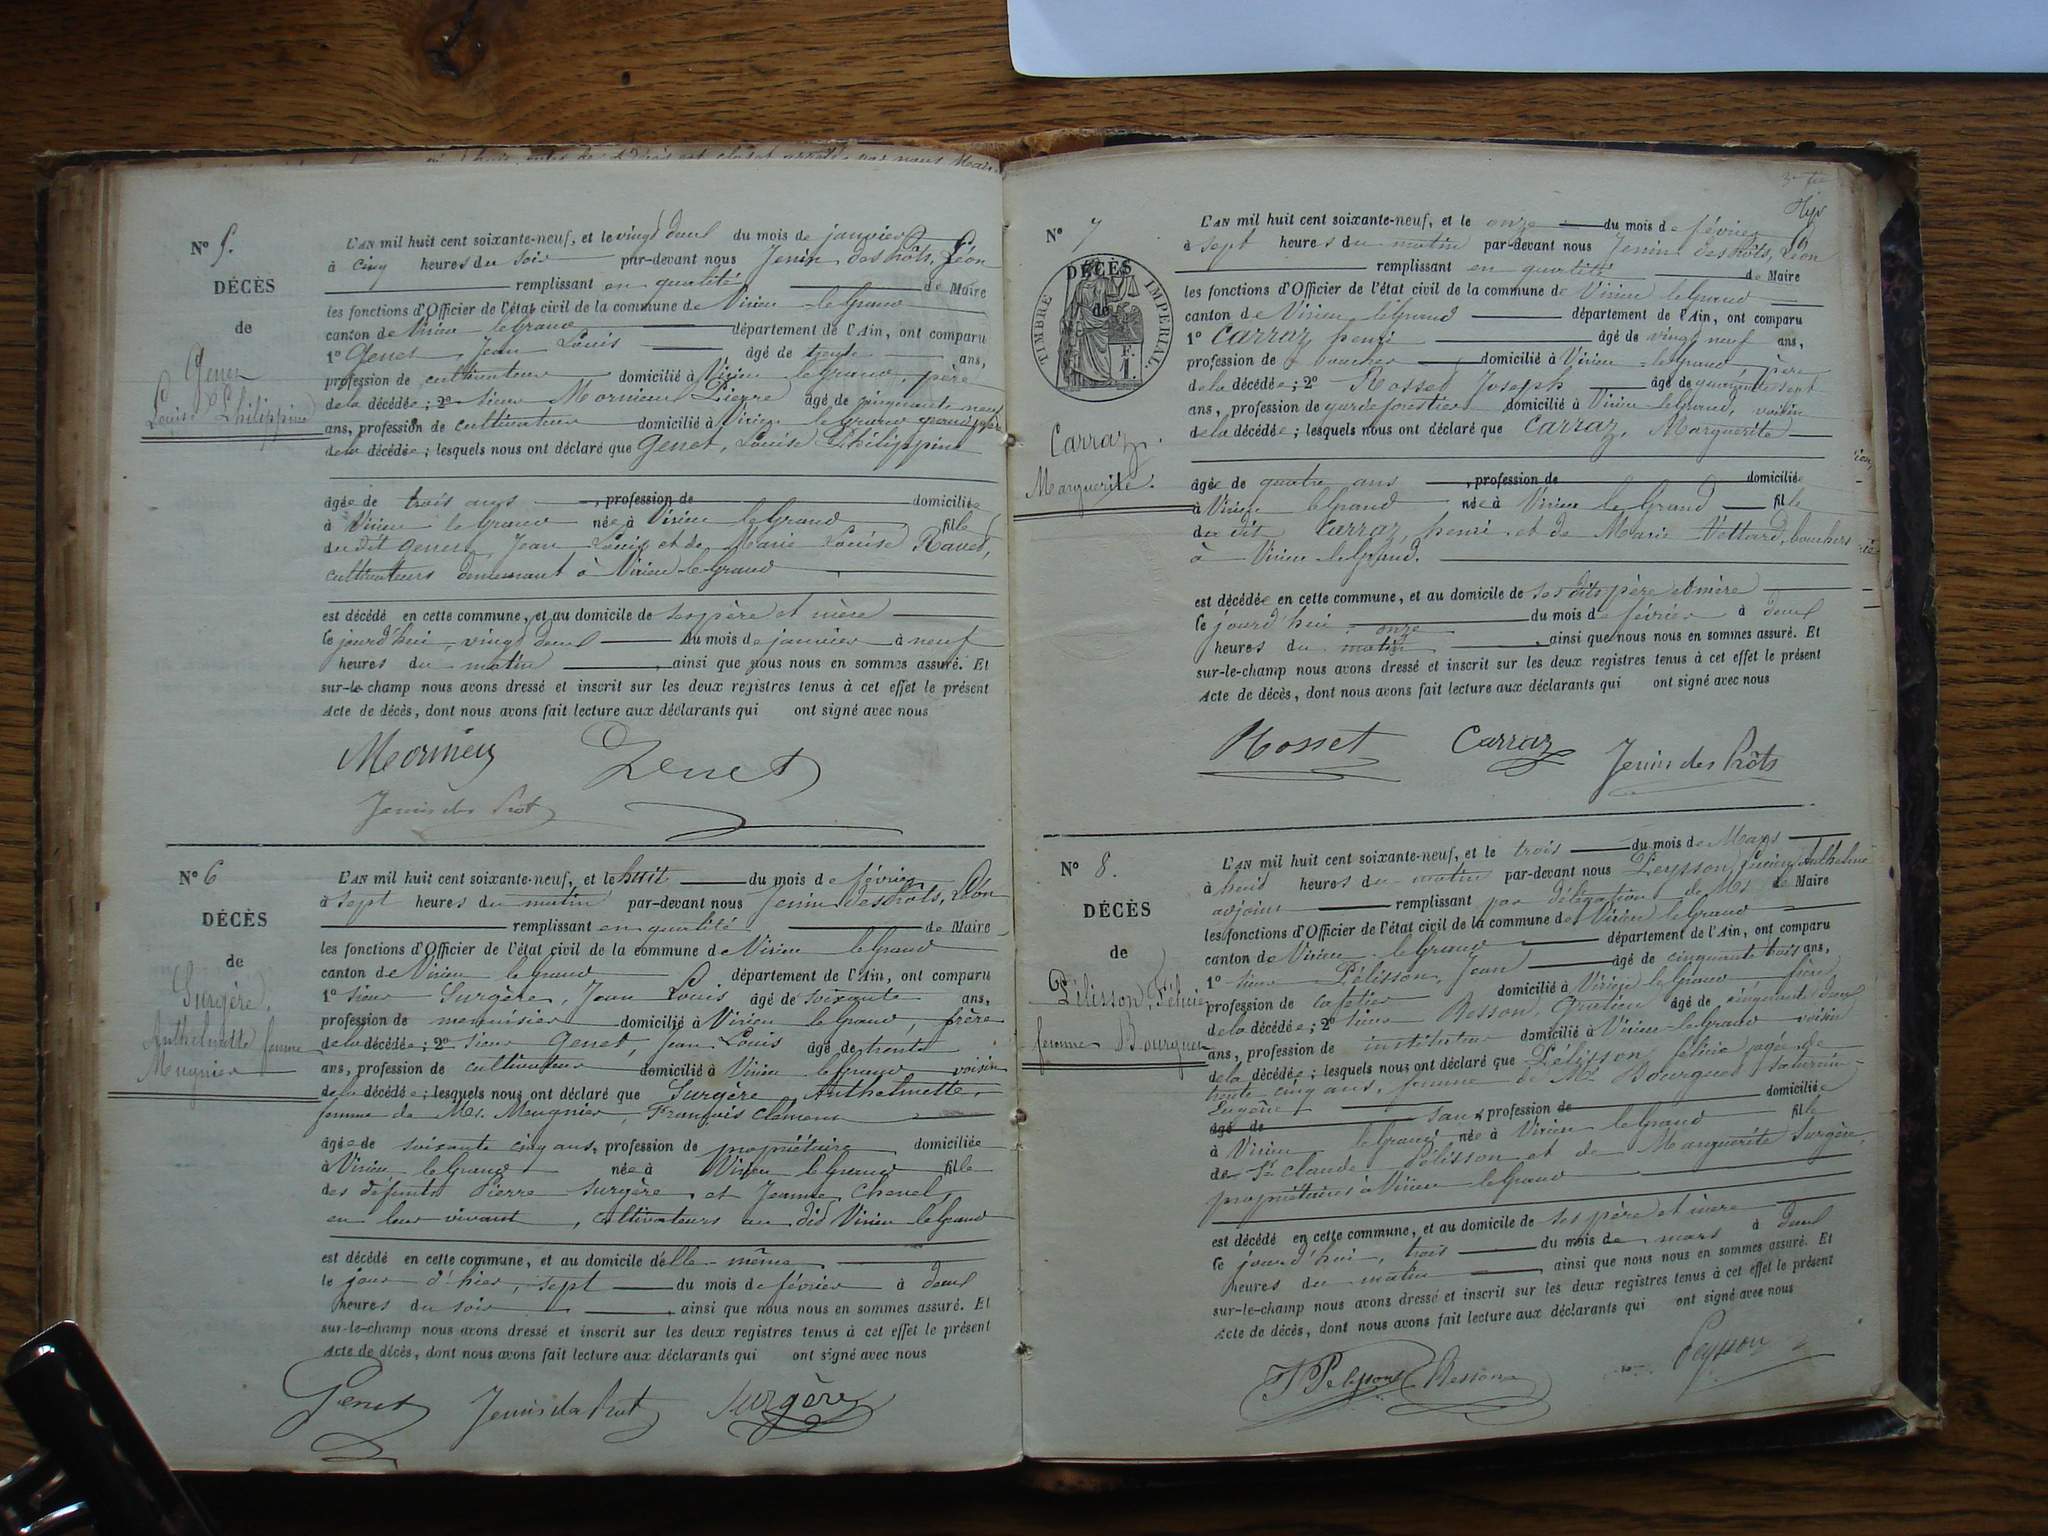 N° 5.
DÉCÈS
de
Genet
Louise Philippine
L'AN mil huit cent soixante-neuf, et le vingt deux du mois de janvier
à cinq heures du soir par-devant nous Jenin des Prôts, Léon
remplissant en qualité de Maire
les fonctions d'Officier de l'état civil de la commune de Virieu-le-Grand
canton de Virieu le Grand département de l'Ain, ont comparu
1° Genet, Jean Louis âgé de trente ans,
profession de cultivateur domicilié à Virieu le Grand, père
de la décédée; 2° sieur Mornieux Pierre âgé de cinquante neuf
ans, profession de cultivateur domicilié à Virieu le Grand grand père
de la décédée; lesquels nous ont déclaré que Genet, Louise Philippine
âgée de trois ans, profession de domiciliée
à Virieu le Grand née à Virieu le Grand fille
du dit Genet, Jean Louis et de Marie Louise Ravet,
cultivateurs demeurant à Virieu-le-Grand
est décédé en cette commune, et au domicile de ses père et mère
le jourd'hui, vingt deux du mois de janvier à neuf
heures du matin, ainsi que nous nous en sommes assuré. Et
sur-le-champ nous avons dressé et inscrit sur les deux registres tenus à cet effet le présent
Acte de décès, dont nous avons fait lecture aux déclarants qui ont signé avec nous
Mornieux Genet
Jenin des Prôts
N° 6
DÉCÈS
de
Surgère,
Anthelmette femme
Mugnier
L'AN mil huit cent soixante-neuf, et le huit du mois de février
à sept heures du matin par-devant nous Jenin des Prôts, Léon
remplissant en qualité de Maire
les fonctions d'Officier de l'état civil de la commune de Virieu le Grand
canton de Virieu le Grand département de l'Ain, ont comparu
1° sieur Surgère, Jean Louis âgé de soixante ans,
profession de menuisier domicilié à Virieu le Grand, frère
de la décédée; 2° sieur Genet, Jean Louis âgé de trente
ans, profession de cultivateur domicilié à Virieu le Grand voisin
de la décédée; lesquels nous ont déclaré que Surgère Anthelmette,
femme de Mr. Meugnier, François Clément
âgée de soixante cinq ans, profession de propriétaire domiciliée
à Virieu le Grand née à Virieu le Grand fille
des défunts Pierre Surgère et Jeanne Chenel,
en leur vivant, cultivateurs au dit Virieu le Grand
est décédé en cette commune, et au domicile d'elle-même
le jour d'hier, sept du mois de février à deux
heures du soir, ainsi que nous nous en sommes assuré. Et
sur-le-champ nous avons dressé et inscrit sur les deux registres tenus à cet effet le présent
Acte de décès, dont nous avons fait lecture aux déclarants qui ont signé avec nous
Genet Jenin des Prôts Surgère
N° 7
DÉCÈS
de
TIMBRE IMPERIAL
F.
1.
Carraz.
Marguerite.
L'AN mil huit cent soixante-neuf, et le onze du mois de février
à sept heures du matin par-devant nous Jenin des Prôts, Léon
remplissant en qualité de Maire
les fonctions d'Officier de l'état civil de la commune de Virieu le Grand
canton de Virieu le Grand département de l'Ain, ont comparu
1° Carraz henri âgé de vingt neuf ans,
profession de boucher domicilié à Virieu-le-Grand père
de la décédée; 2° Rosset Joseph âgé de quarante sept
ans, profession de garde forestier domicilié à Virieu-le-Grand, voisin
de la décédée; lesquels nous ont déclaré que Carraz, Marguerite
âgée de quatre ans, profession de domiciliée
à Virieu le Grand née à Virieu le Grand fille
du dit Carraz, henri et de Marie Vettard, bouchers
à Virieu le Grand.
est décédée en cette commune, et au domicile de ses dits père et mère
le jourd'hui, onze du mois de février à deux
heures du matin, ainsi que nous nous en sommes assuré. Et
sur-le-champ nous avons dressé et inscrit sur les deux registres tenus à cet effet le présent
Acte de décès, dont nous avons fait lecture aux déclarants qui ont signé avec nous
Rosset Carraz Jenin des Prôts
N° 8.
DÉCÈS
de
Pélisson, Félicie
femme Bourguet
L'AN mil huit cent soixante-neuf, et le trois du mois de Mars
à huit heures du matin par-devant nous Peysson, Anthelme
adjoint remplissant par délégation de Mr. le Maire
les fonctions d'Officier de l'état civil de la commune de Virieu le Grand
canton de Virieu le Grand département de l'Ain, ont comparu
1° sieur Pélisson, Jean âgé de cinquante trois ans,
profession de cafetier domicilié à Virieu le Grand frère
de la décédée; 2° sieur Besson, Gratien âgé de cinquante deux
ans, profession de instituteur domicilié à Virieu-le-Grand voisin
de la décédée; lesquels nous ont déclaré que Pélisson félicie âgée de
trente cinq ans, femme de Mr. Bourguet, saturnin
Eugène
âgé de sans profession de domiciliée
à Virieu le Grand née à Virieu le Grand fille
de Sr. Claude Pélisson et de Marguerite Surgère,
propriétaires à Virieu le Grand
est décédé en cette commune, et au domicile de ses père et mère
le jourd'hui, trois du mois de mars à deux
heures du matin, ainsi que nous nous en sommes assuré. Et
sur-le-champ nous avons dressé et inscrit sur les deux registres tenus à cet effet le présent
Acte de décès, dont nous avons fait lecture aux déclarants qui ont signé avec nous
J Pelisson Besson Peysson